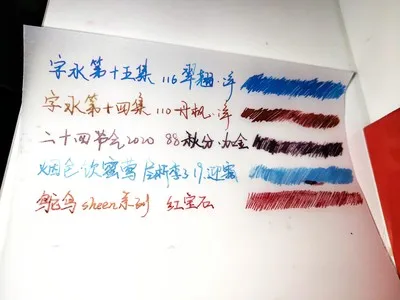 字水第十五集 116 翠翘·洋
字水第十四集 110 丹枫·洋
二十四节气2020 88 秋分·加金
烟色·饮蜜莺 19.
鸵鸟 sheen系列 红宝石